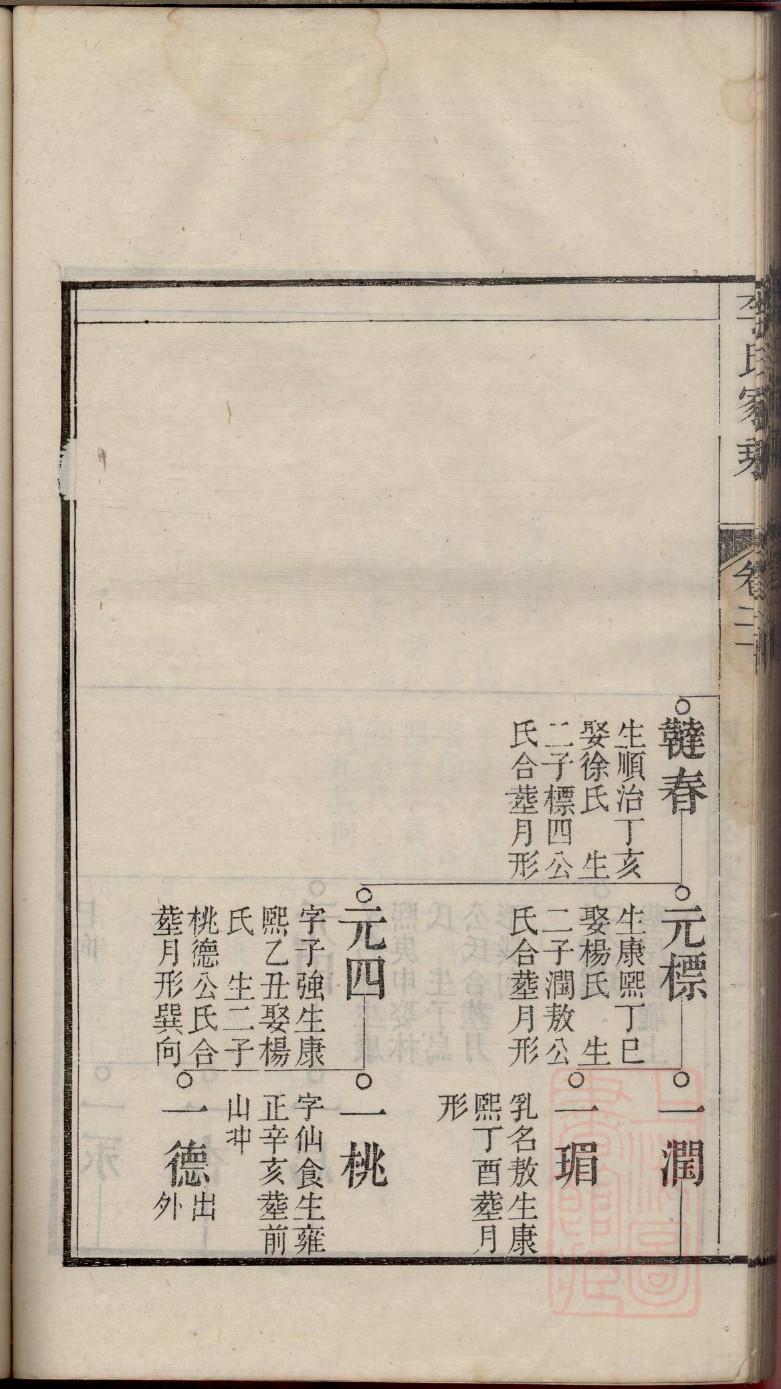 李氏家乘
卷二
韃春
生順治丁亥
娶徐氏　生
二子標四公
氏合塟月形
元標
生康熙丁巳
娶楊氏　生
二子潤敖公
氏合塟月形
元四
字子強生康
熙乙丑娶楊
氏　生二子
桃德公氏合
塟月形巽向
一潤
一瑂
乳名敖生康
熙丁酉塟月
形
一桃
字仙食生雍
正辛亥塟前
山坤
一德
出
外